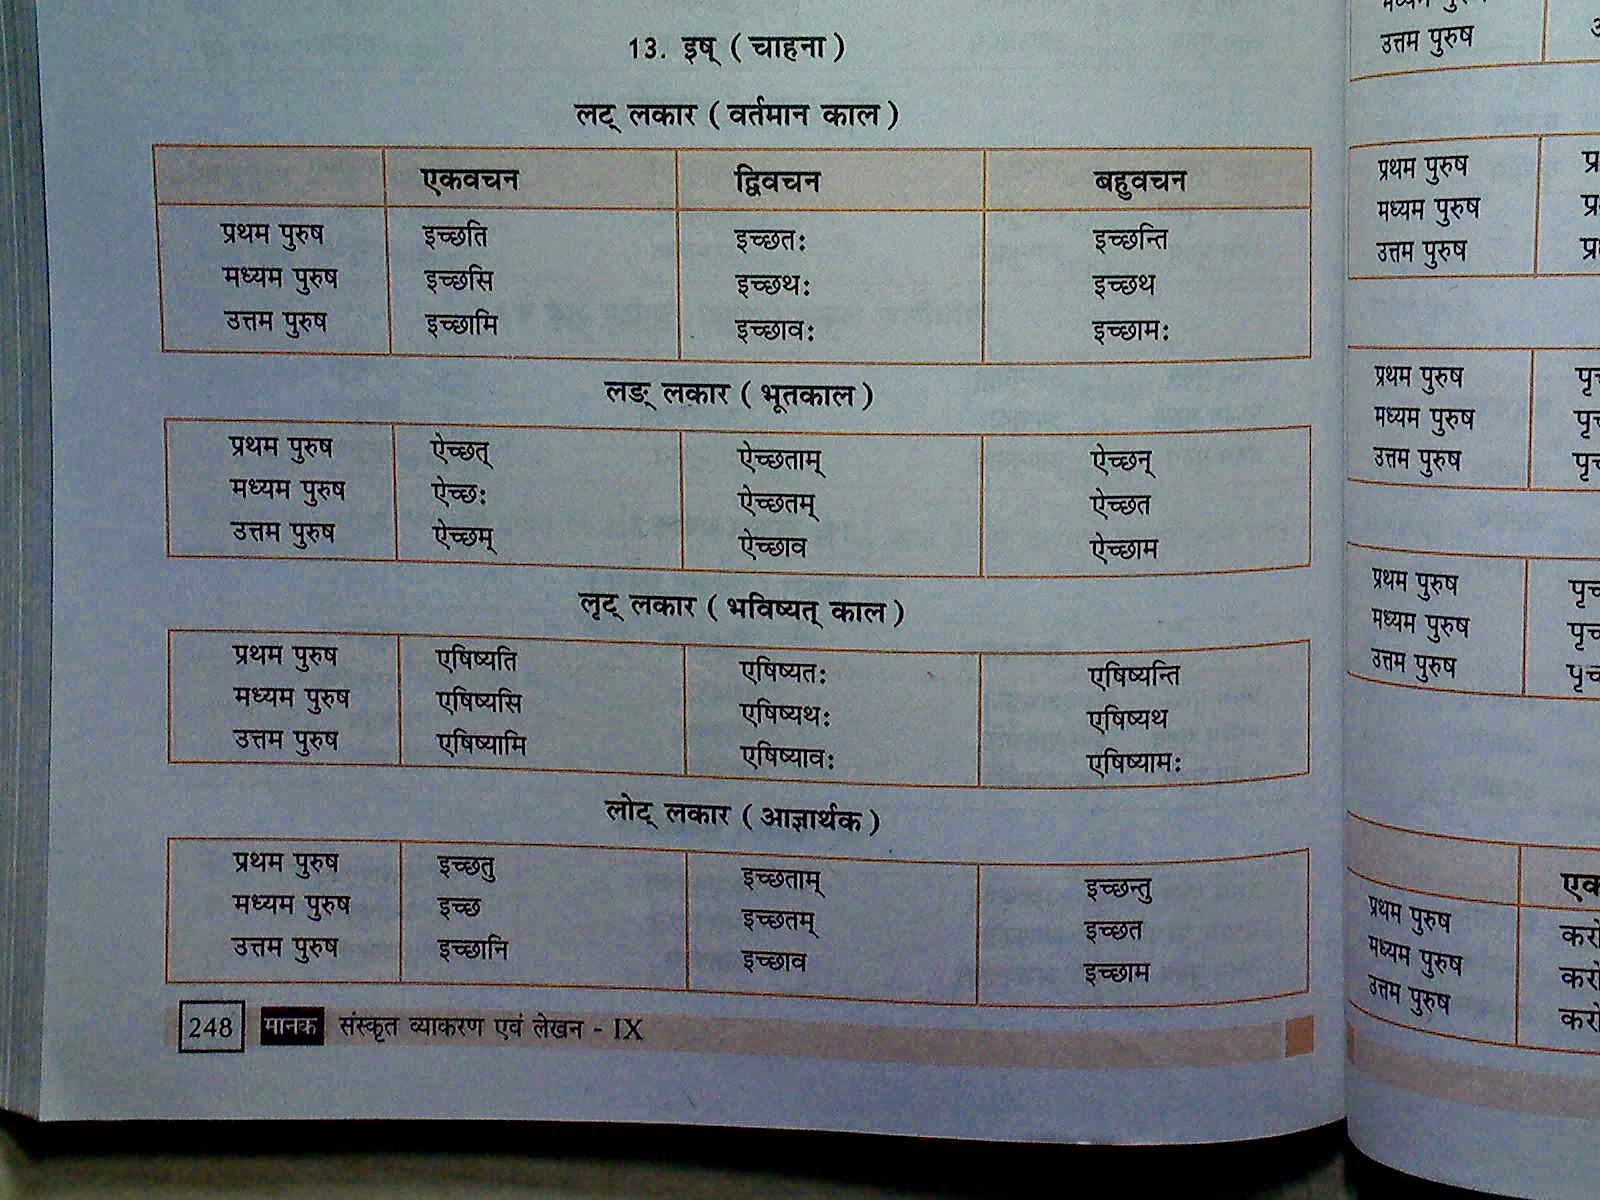 13. इष् ( चाहना )
लट् लकार ( वर्तमान काल )
एकवचन द्विवचन बहुवचन
प्रथम पुरुष इच्छति इच्छतः इच्छन्ति
मध्यम पुरुष इच्छसि इच्छथः इच्छथ
उत्तम पुरुष इच्छामि इच्छावः इच्छामः
लङ् लकार ( भूतकाल )
प्रथम पुरुष ऐच्छत् ऐच्छताम् ऐच्छन्
मध्यम पुरुष ऐच्छः ऐच्छतम् ऐच्छत
उत्तम पुरुष ऐच्छम् ऐच्छाव ऐच्छाम
लृट् लकार ( भविष्यत् काल )
प्रथम पुरुष एषिष्यति एषिष्यतः एषिष्यन्ति
मध्यम पुरुष एषिष्यसि एषिष्यथः एषिष्यथ
उत्तम पुरुष एषिष्यामि एषिष्यावः एषिष्यामः
लोट् लकार ( आज्ञार्थक )
प्रथम पुरुष इच्छतु इच्छताम् इच्छन्तु
मध्यम पुरुष इच्छ इच्छतम् इच्छत
उत्तम पुरुष इच्छानि इच्छाव इच्छाम
248 मानक संस्कृत व्याकरण एवं लेखन - IX
उत्तम पुरुष
प्रथम पुरुष
मध्यम पुरुष
उत्तम पुरुष
प्रथम पुरुष
मध्यम पुरुष
उत्तम पुरुष
प्रथम पुरुष
मध्यम पुरुष
उत्तम पुरुष
प्रथम पुरुष
मध्यम पुरुष
उत्तम पुरुष